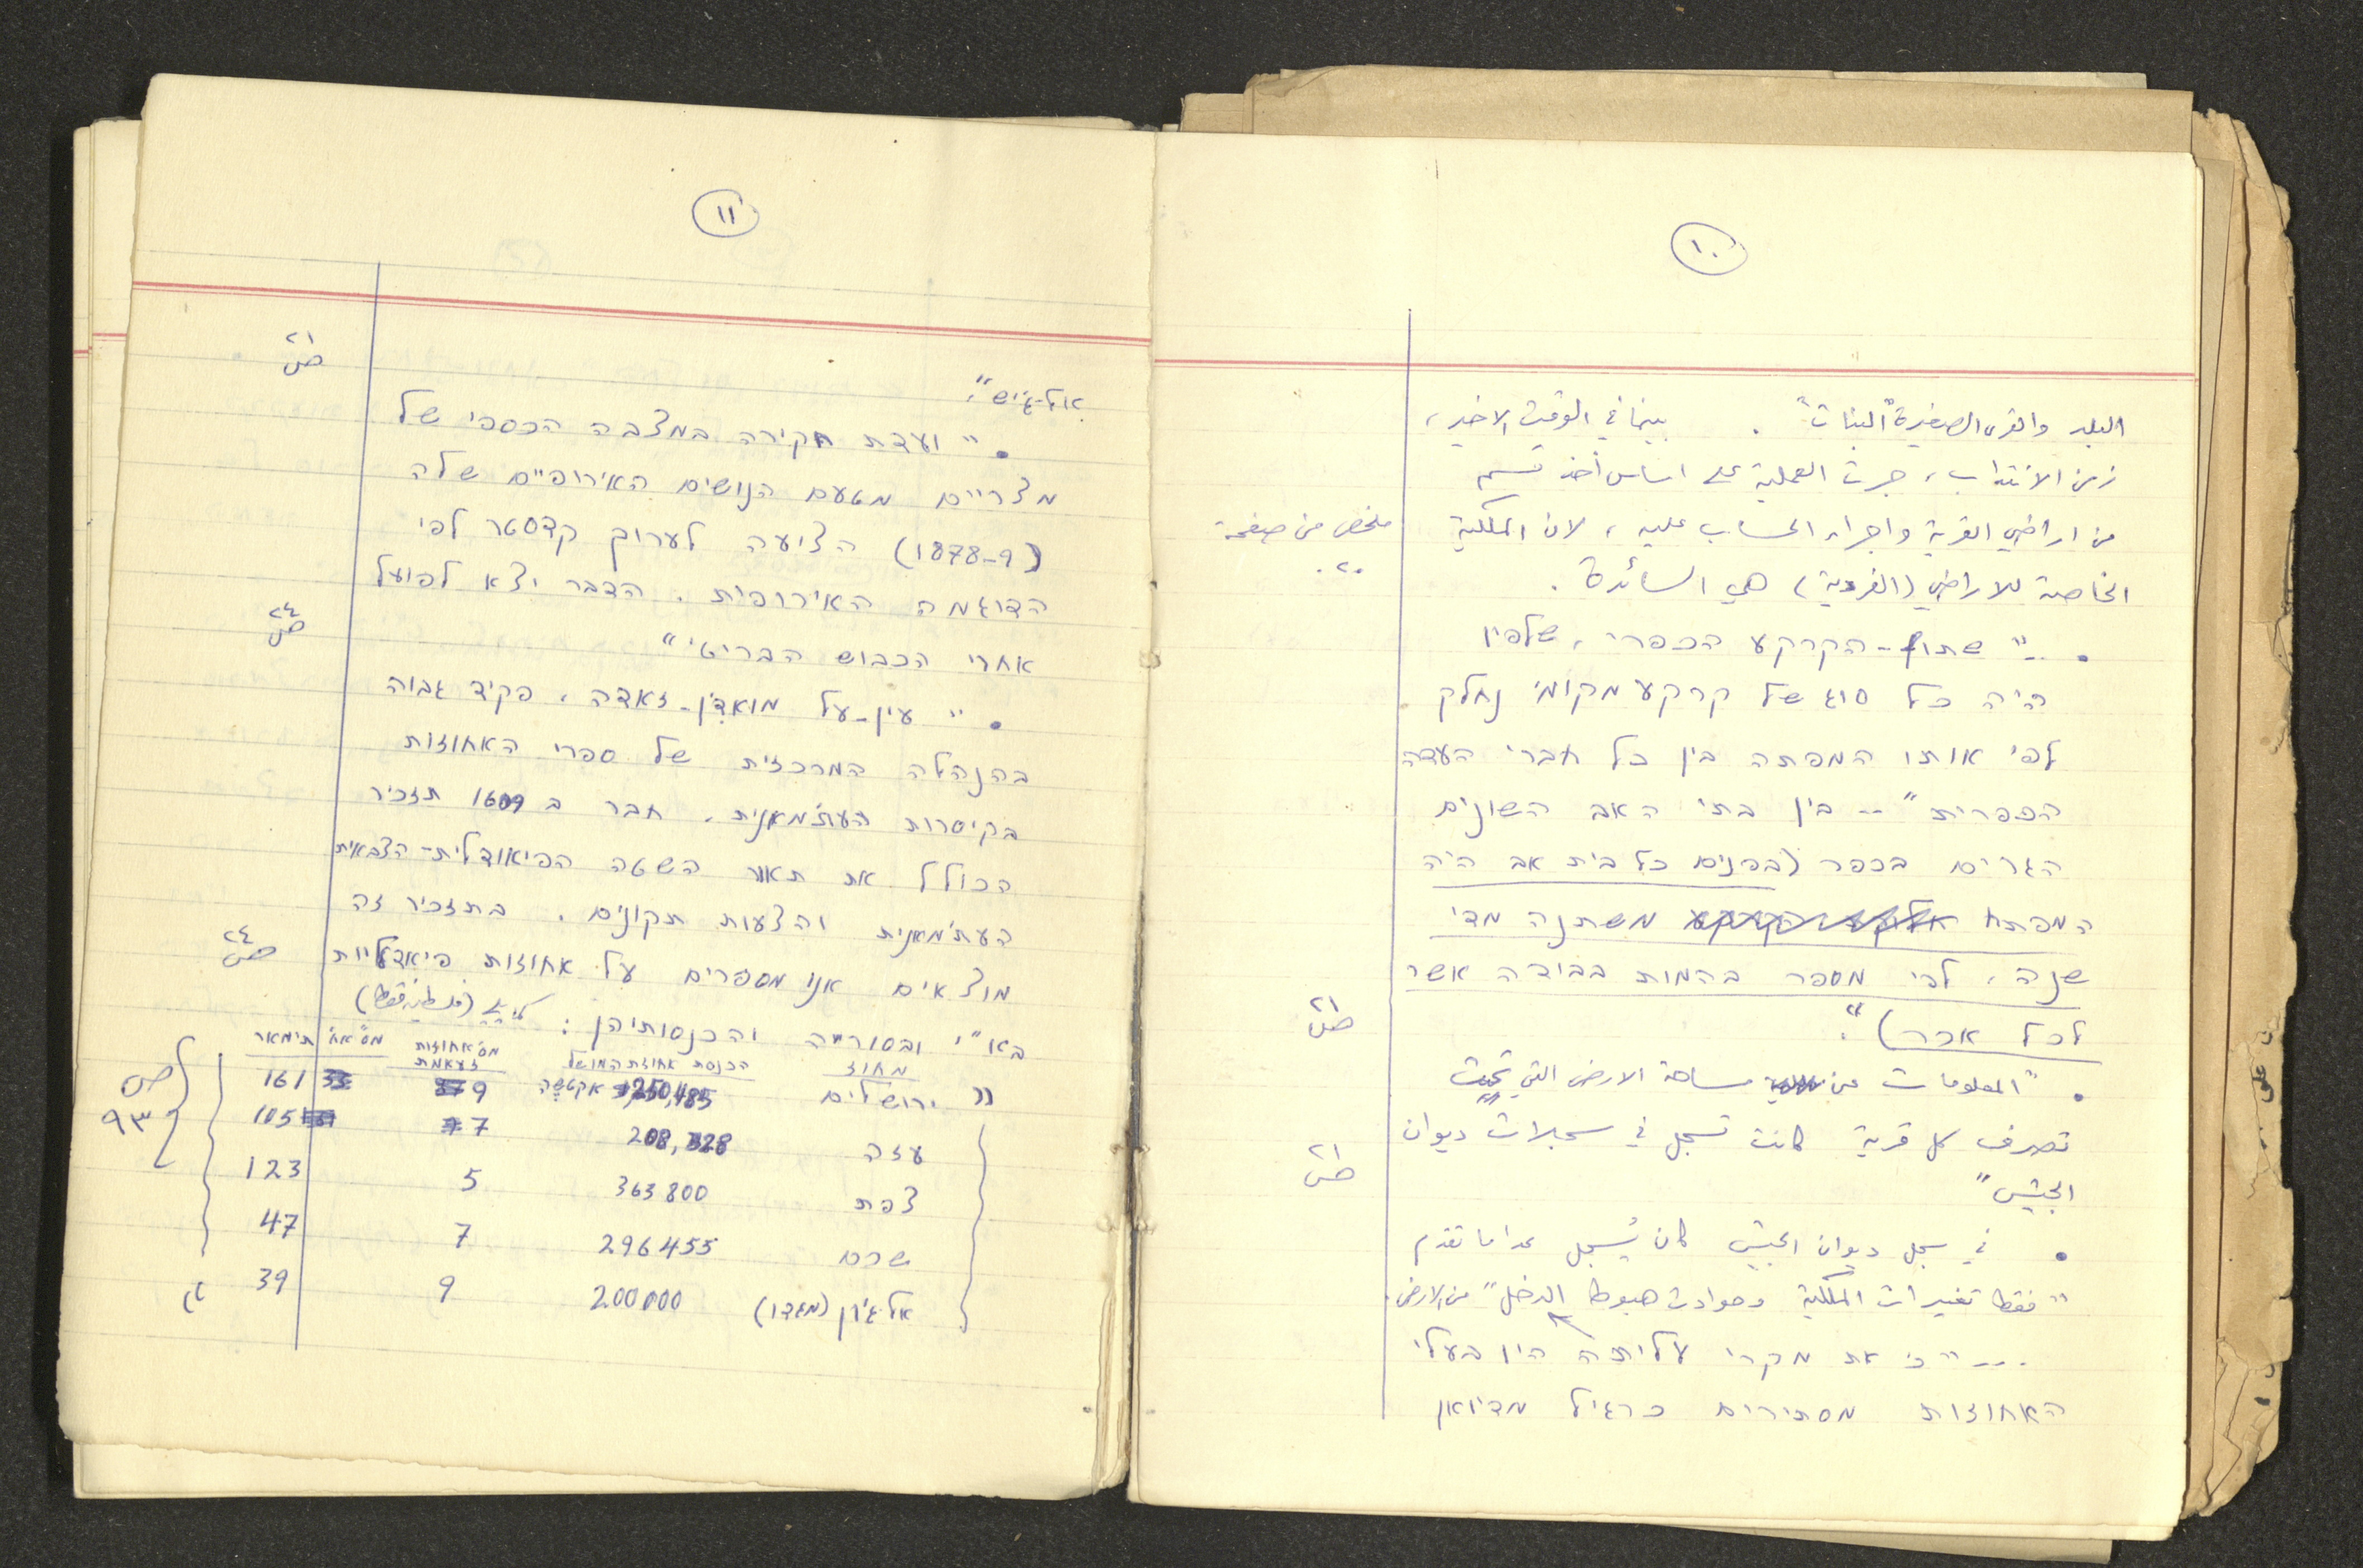 ١٠
البلد والقرى الصغيرة "البنات". بينما في الوقت الاخير،
زمن الانتداب، جرت العملية على اساس أخذ قسم
من اراضي القرية واجراء الحساب عليه، لان الملكية
ملخص من صفحة
٢٠.
الخاصة للاراضي (الفردية) هي السائدة.
• .." שתוף-הקרקע הכפרי, שלפיו
היה כל סוג של קרקע מקומי נחלק
לפי אותו המפתח בין כל חברי העדה
הכפרית" .. בין בתי האב השונים
הגרים בכפר (בפנים כל בית אב היה
המפתח משתנה מדי
שנה, לפי מספר בהמות בבודה אשר
לכל אכר)".
ص ٢١
• "المعلومات عن مساحة الارض التي تحت
تصرف كل قرية كانت تسجل في سجلات ديوان
الجيش"
ص ٢١
• في سجل ديوان الجيش كان يُسجل عدا ما تقدم
"فقط تغييرات الملكية وحوادث هبوط الدخل" من الارض.
... "כי את מקרי עליתה היו בעלי
האחוזות מסתירים כרגיל מדיואן
١١
אל-ג'יש".
ص ٢١
• "ועדת חקירה במצבה הכספי של
מצריים מטעם הנושים האירופיים שלה
(1878-9) הציעה לערוך קדסטר לפי
הדוגמה האירופית. הדבר יצא לפועל
אחרי הכבוש הבריטי"
ص ٢٤
• "עין-על מואד'ן-זאדה, פקיד גבוה
בהנהלה המרכזית של ספרי האחוזות
בקיסרות העת'מאנית, חבר ב 1609 תזכיר
הכולל את תאור השטה הפיאודלית-הצבאית
העת'מאנית והצעות תקונים. בתזכיר זה
מוצאים אנו מספרים על אחוזות פיאדליות
ص ٢٤
בא"י ובסוריה והכנסותיהן: (فلسطين فقط)
מחוז הכנסת אחוזת המושל מס' אחוזות זעאמת מס' אח' תימאר
" ירושלים 250,485 אקטשה 9 161
עזה 208,328 7 105
צפת 363800 5 123
שכם 296455 7 47
אל-ג'ון (מגדו) 200000 9 39 "
ص
٩٣